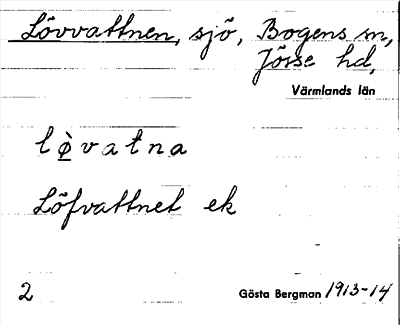 Lövvattnen, sjö, Bogens sn,
Jösse hd,
Värmlands län
lø̀vatna
Löfvattnet ek
2 Gösta Bergman 1913-14